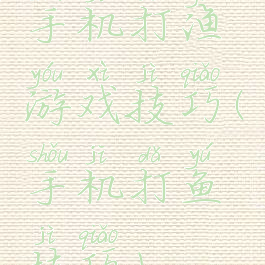 手机打渔
yóu xì jì qiǎo
游戏技巧(
shǒu jī dǎ yú
手机打鱼
jì qiǎo
技巧)